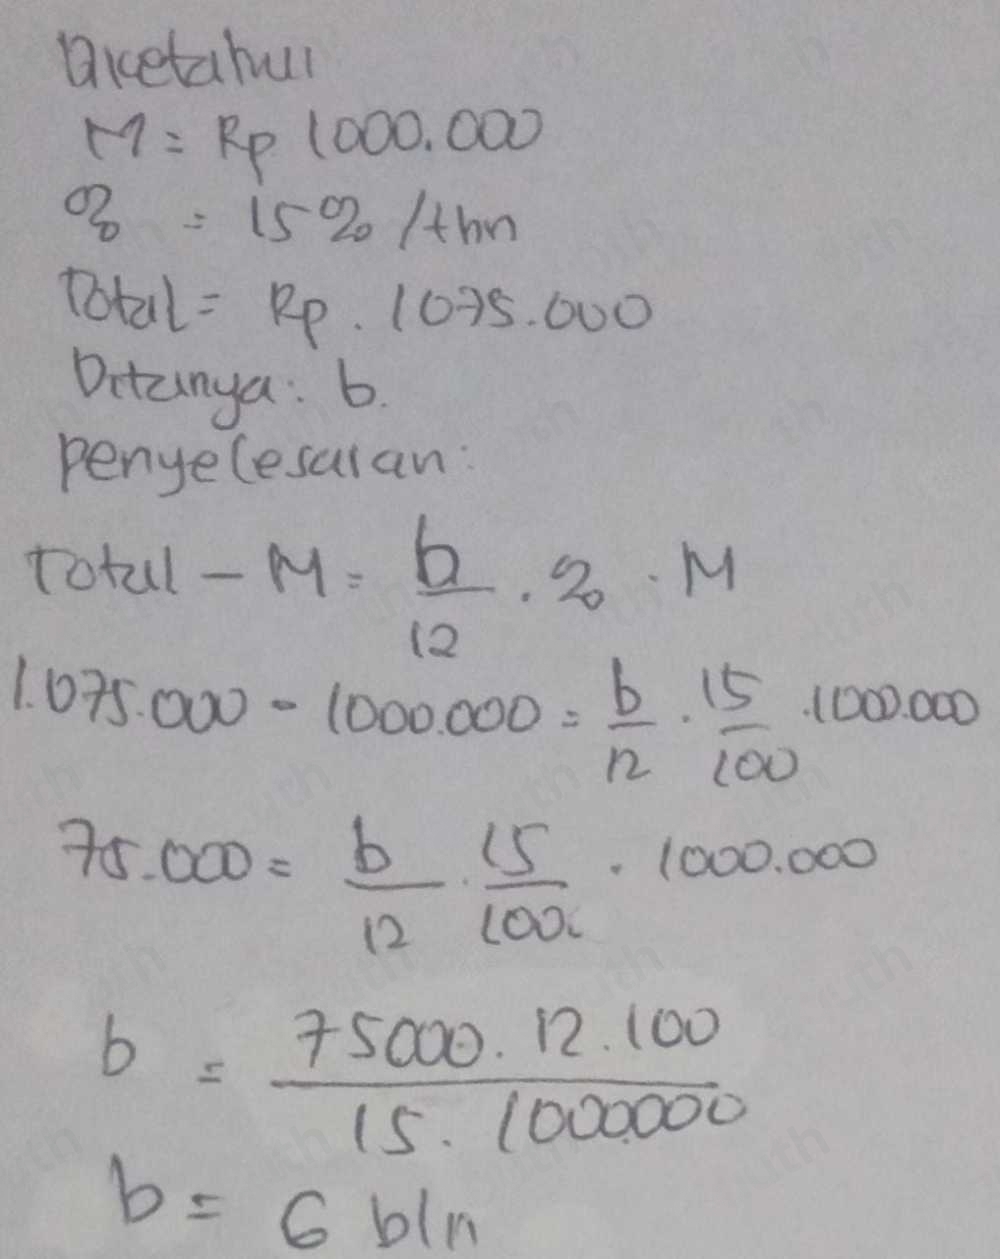 Diketahui
M = Rp 1000.000
% = 15% /thn
Total = Rp. 1075.000
Ditanya: b.
Penyelesaian:
Total - M = b/12 . % . M
1.075.000 - 1000.000 = b/12 . 15/100 . 1000.000
75.000 = b/12 . 15/100 . 1000.000
b = 75000.12.100/15.1000.000
b = 6 bln